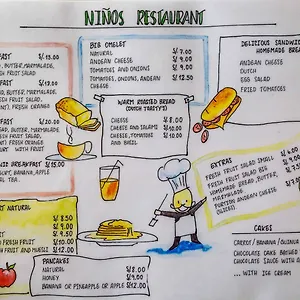 NIÑOS RESTAURANT
FAST S/ 13.00
D, BUTTER, MARMALADE,
FRUIT SALAD
FAST S/
BUTTER, MARMALADE,
FRUIT SALAD,
), FRESH ORANGE
FAST S/ 20.00
AD, BUTTER, MARMALADE,
FRUIT SALAD,
), FRESH ORANGE
WITH FRUIT
BREAKFAST S/ 15.00
BANANA, APPLE
TEA.
NATURAL
S/ 8.50
S/ 9.00
S/ 9.00
FRESH FRUIT S/ 10.00
FRUIT AND MUESLI S/ 12.00
BIG OMELET
NATURAL S/ 7.00
ANDEAN CHEESE S/ 9.00
TOMATOES AND ONIONS S/ 9.00
TOMATOES, ONIONS, ANDEAN S/ 12.50
CHEESE
WARM ROASTED BREAD
(DUTCH TASTY'S)
CHEESE S/ 8.00
CHEESE AND SALAMI S/ 10.00
CHEESE, TOMATOES S/ 10.00
AND BASIL
PANCAKES
NATURAL S/ 8.00
HONEY S/ 9.00
BANANA OR PINEAPPLE OR APPLE S/ 12.00
DELICIOUS SANDWI
HOMEMADE BREA
ANDEAN CHEESE
DUTCH
EGG SALAD
FRIED TOMATOES
EXTRAS
FRESH FRUIT SALAD SMALL S/ 6.00
FRESH FRUIT SALAD BIG
HOMEMADE BREAD, BUTTER,
MARMALADE
PORTION ANDEAN CHEESE
CAKES
CARROT/BANANA/QUINUA
CHOCOLATE CAKE
CHOCOLATE SAUCE WITH
... WITH ICE CREAM